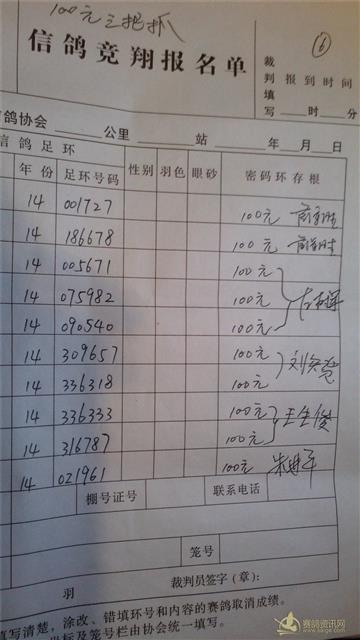 100元三把抓
⑥
信鸽竞翔报名单
裁判填写
报到时间
时 分
信鸽协会 公里 站 年 月 日
信鸽足环
年份 足环号码 性别 羽色 眼砂 密码环存根
14 001727 100元
14 186678 100元
14 005671 100元
14 075982 100元
14 090540 100元
14 309657 100元
14 336318 100元
14 336333 100元 王全俊
14 316787 100元
14 021961 100元
棚号证号 联系电话
笼号
羽 裁判员签字(章):
填写清楚,涂改、错填环号和内容的赛鸽取消成绩。
坐标及笼号栏由协会统一填写。
赛鸽资讯网
www.saige.com